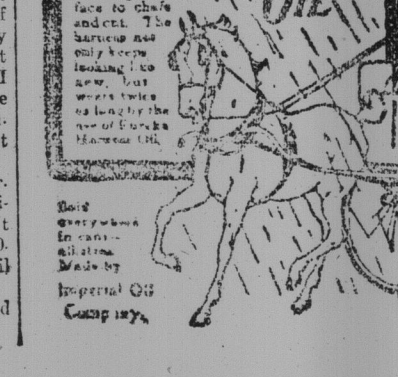 OIL
face to chafe
and cut. The
harness not
only keeps
looking like
new, but
wears twice
as long by the
use of Eureka
Harness Oil.
Sold
everywhere
in cans—
all sizes.
Made by
Imperial Oil
Company.